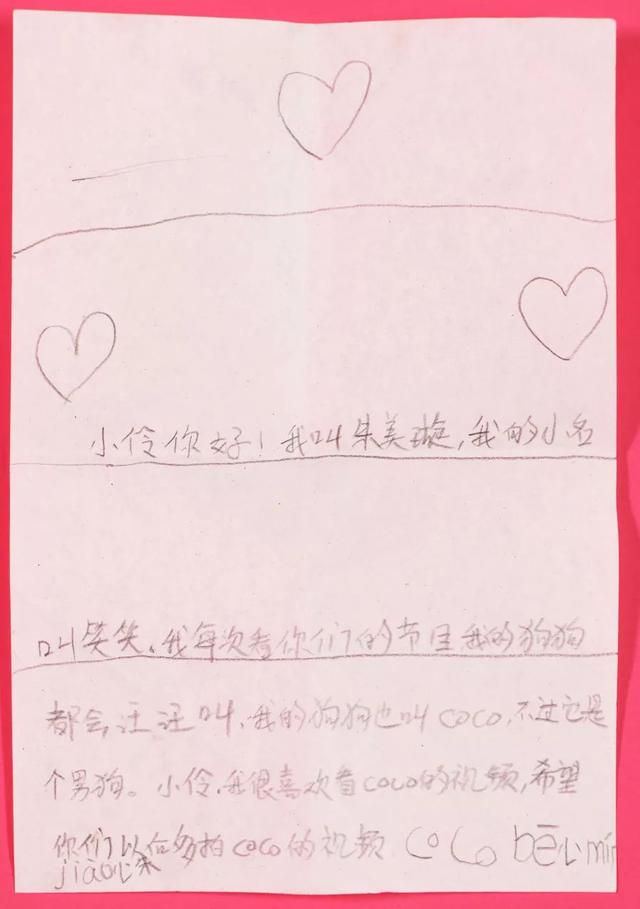 小伶你好！我叫朱美璇，我的小名
叫笑笑、我每次看你们的节目我的狗狗
都会汪汪叫、我的狗狗也叫coco，不过它是
个男狗。小伶，我很喜欢看coco的视频，希望
你们以后多拍coco的视频 CoCo bēi mín
jiāo